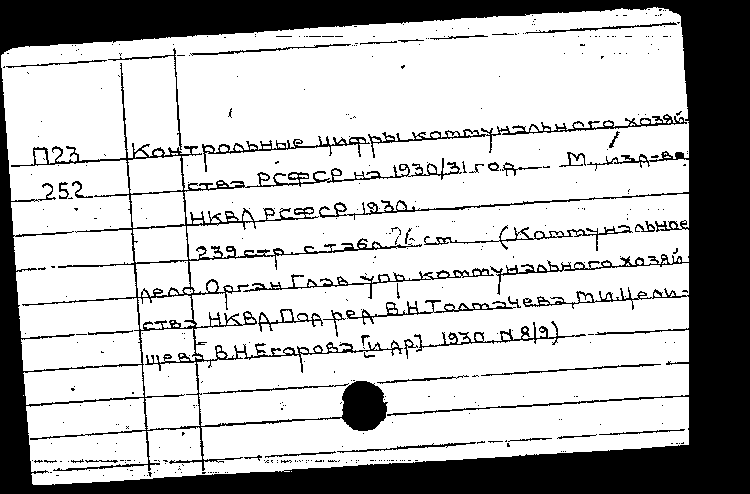 П23 Контрольные цифры коммунального хозяй-
252 ства РСФСР на 1930/31 год. М., изд-во
НКВД РСФСР, 1930.
239 стр. с табл. 26 см. (Коммунальное
дело. Орган Глав. упр. коммунального хозяй-
ства НКВД. Под ред. В.Н.Толмачева, М.И.Цели-
щева, В.Н.Егорова [и др]. 1930, N 8/9)